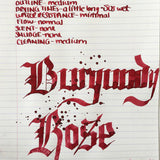 OUTLINE - medium
DRYING TIMES - a little long - 30s wet
WATER RESISTANCE - minimal
FLOW - normal
SCENT - none
SMUDGE - none
CLEANING - medium
Burgundy
Rose